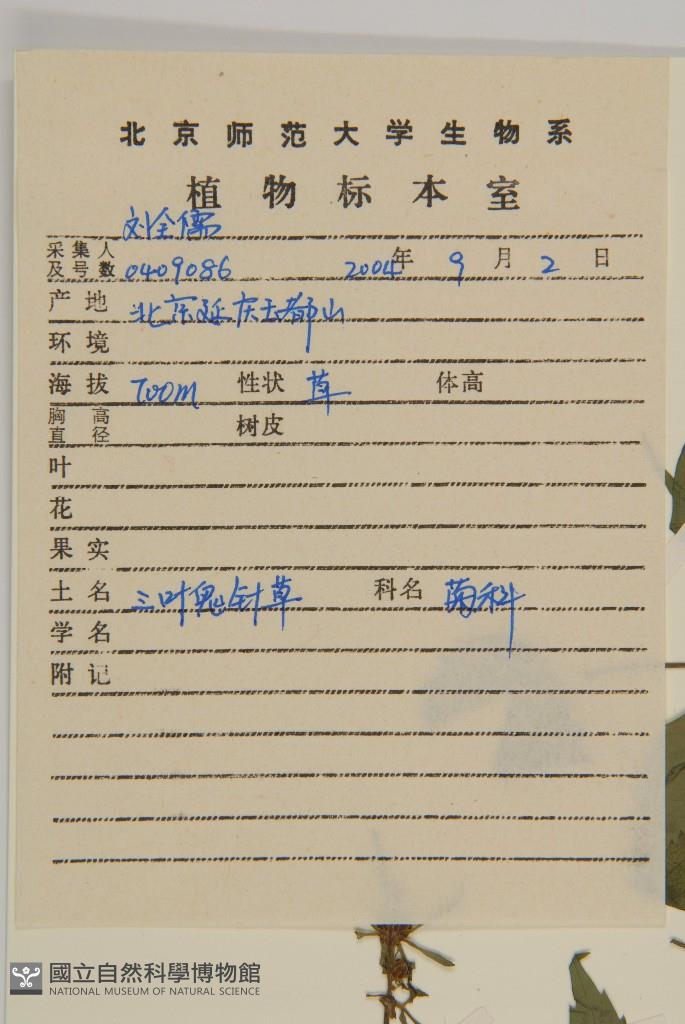 北京师范大学生物系
植物标本室
刘全儒
采集人及号数 0409086 2004年 9 月 2 日
产地 北京延庆玉都山
环境
海拔 700m 性状 草 体高
胸高直径 树皮
叶
花
果实
土名 三叶鬼针草 科名 菊科
学名
附记
國立自然科學博物館
NATIONAL MUSEUM OF NATURAL SCIENCE